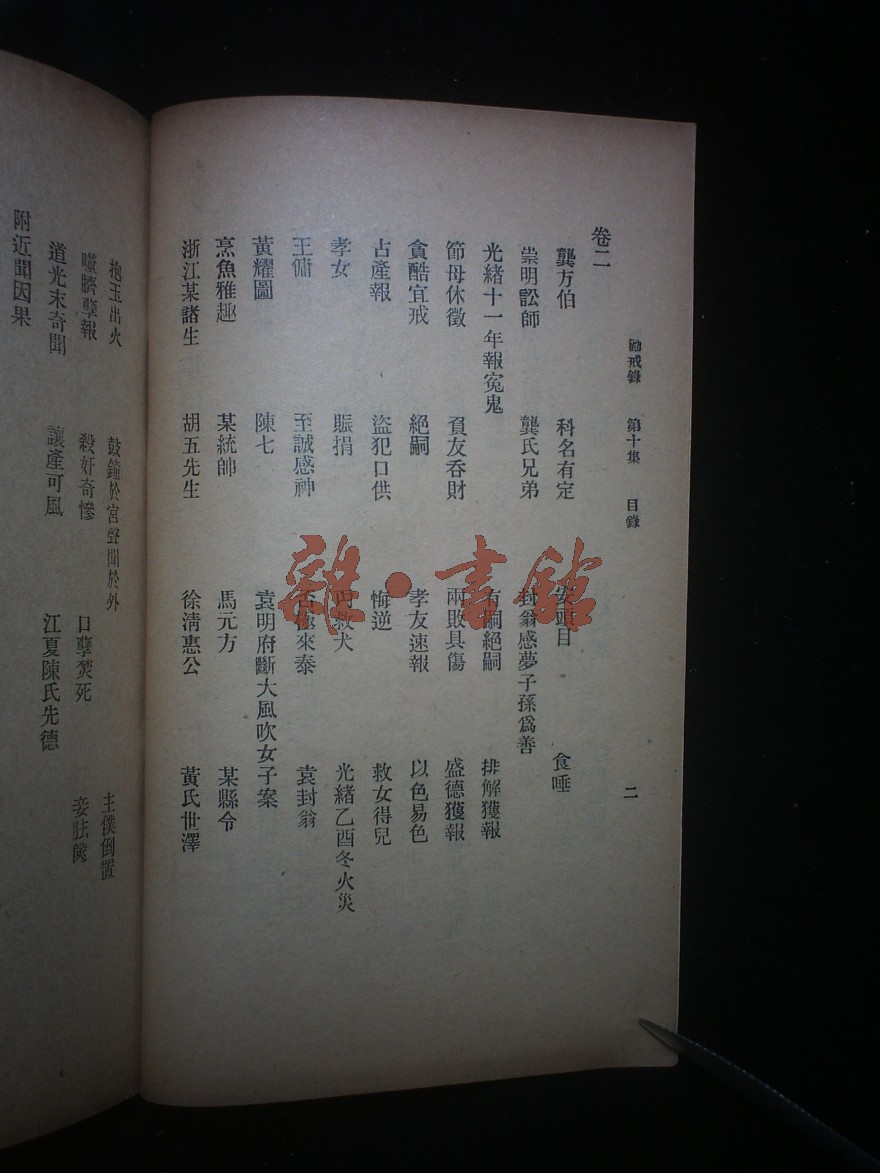 勸戒錄　第十集　目錄　二
卷二
龔方伯　科名有定　頭目　食唾
崇明訟師　龔氏兄弟　封翁感夢子孫爲善
光緒十一年報寃鬼　有嗣絕嗣　排解獲報
節母休徵　負友吞財　兩敗具傷　盛德獲報
貪酷宜戒　絕嗣　孝友速報　以色易色
占產報　盜犯口供　悔逆　救女得兒
孝女　賑捐　救犬　光緒乙酉冬火災
王傭　至誠感神　否極來泰　袁封翁
黃耀圖　陳七　袁明府斷大風吹女子案
烹魚雅趣　某統帥　馬元方　某縣令
浙江某諸生　胡五先生　徐清惠公　黃氏世澤
抱玉出火　鼓鐘於宮聲聞於外　主僕倒置
噬臍孽報　殺奸奇慘　口孽焚死　妾胠篋
道光末奇聞　讓產可風　江夏陳氏先德
附近聞因果
雜·書館